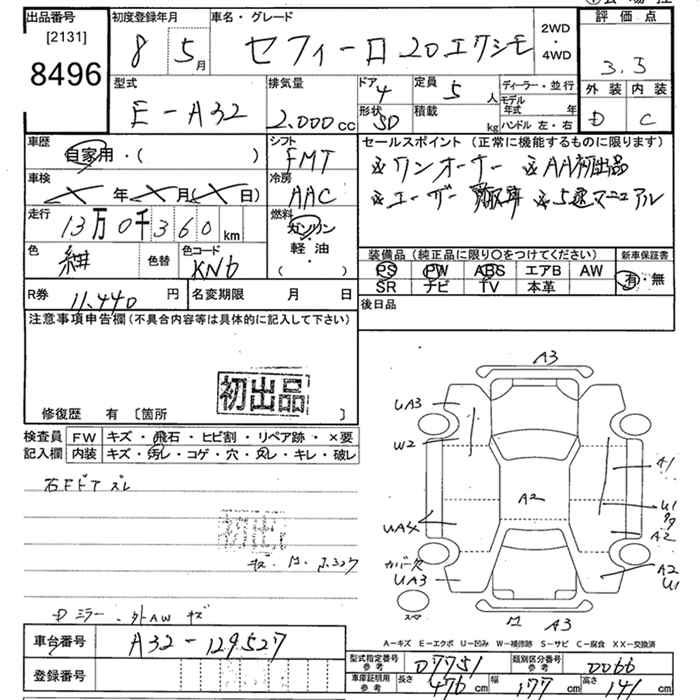 出品番号
[2131]
8496
初度登録年月
8 5月
車名・グレード
セフィーロ 20エクシモ
2WD
・
4WD
評価点
3.5
外装 内装
D C
型式
E-A32
排気量
2.000cc
ドア
4
定員
5人
形状
SD
積載
kg
ディーラー・並行
モデル年式 年
ハンドル 左・右
車歴
自家用・( )
シフト
FMT
車検
年 月( 日)
冷房
AAC
走行
13万0千360km
燃料
ガソリン
軽油
( )
色
紺
色替
色コード
KN6
R券
11.440円
名変期限 月 日
セールスポイント(正常に機能するものに限ります)
☆ワンオーナー ☆AA初出品
☆ユーザー買取車 ☆5速マニュアル
装備品(純正品に限り○をつけてください)
PS PW ABS エアB AW
SR ナビ TV 本革
新車保証書
有・無
後日品
注意事項申告欄(不具合内容等は具体的に記入して下さい)
初出品
修復歴 有 〔箇所 〕
検査員
記入欄
FW キズ・飛石・ヒビ割・リペア跡・×要
内装 キズ・汚レ・コゲ・穴・スレ・キレ・破レ
右Fドアズレ
初出
Dミラー.外AWキズ
A3
UA3
W2
A1
A2
U1
UA4
A2
カバー欠
UA3
A2
U1
スマ
A3
A-キズ E-エクボ U-凹み W-補修跡 S-サビ C-腐食 XX-交換済
車台番号
A32-129527
登録番号
型式指定番号
参考
07751
類別区分番号
参考
0066
車庫証明用
参考
長さ 476cm 幅 177cm 高さ 141cm